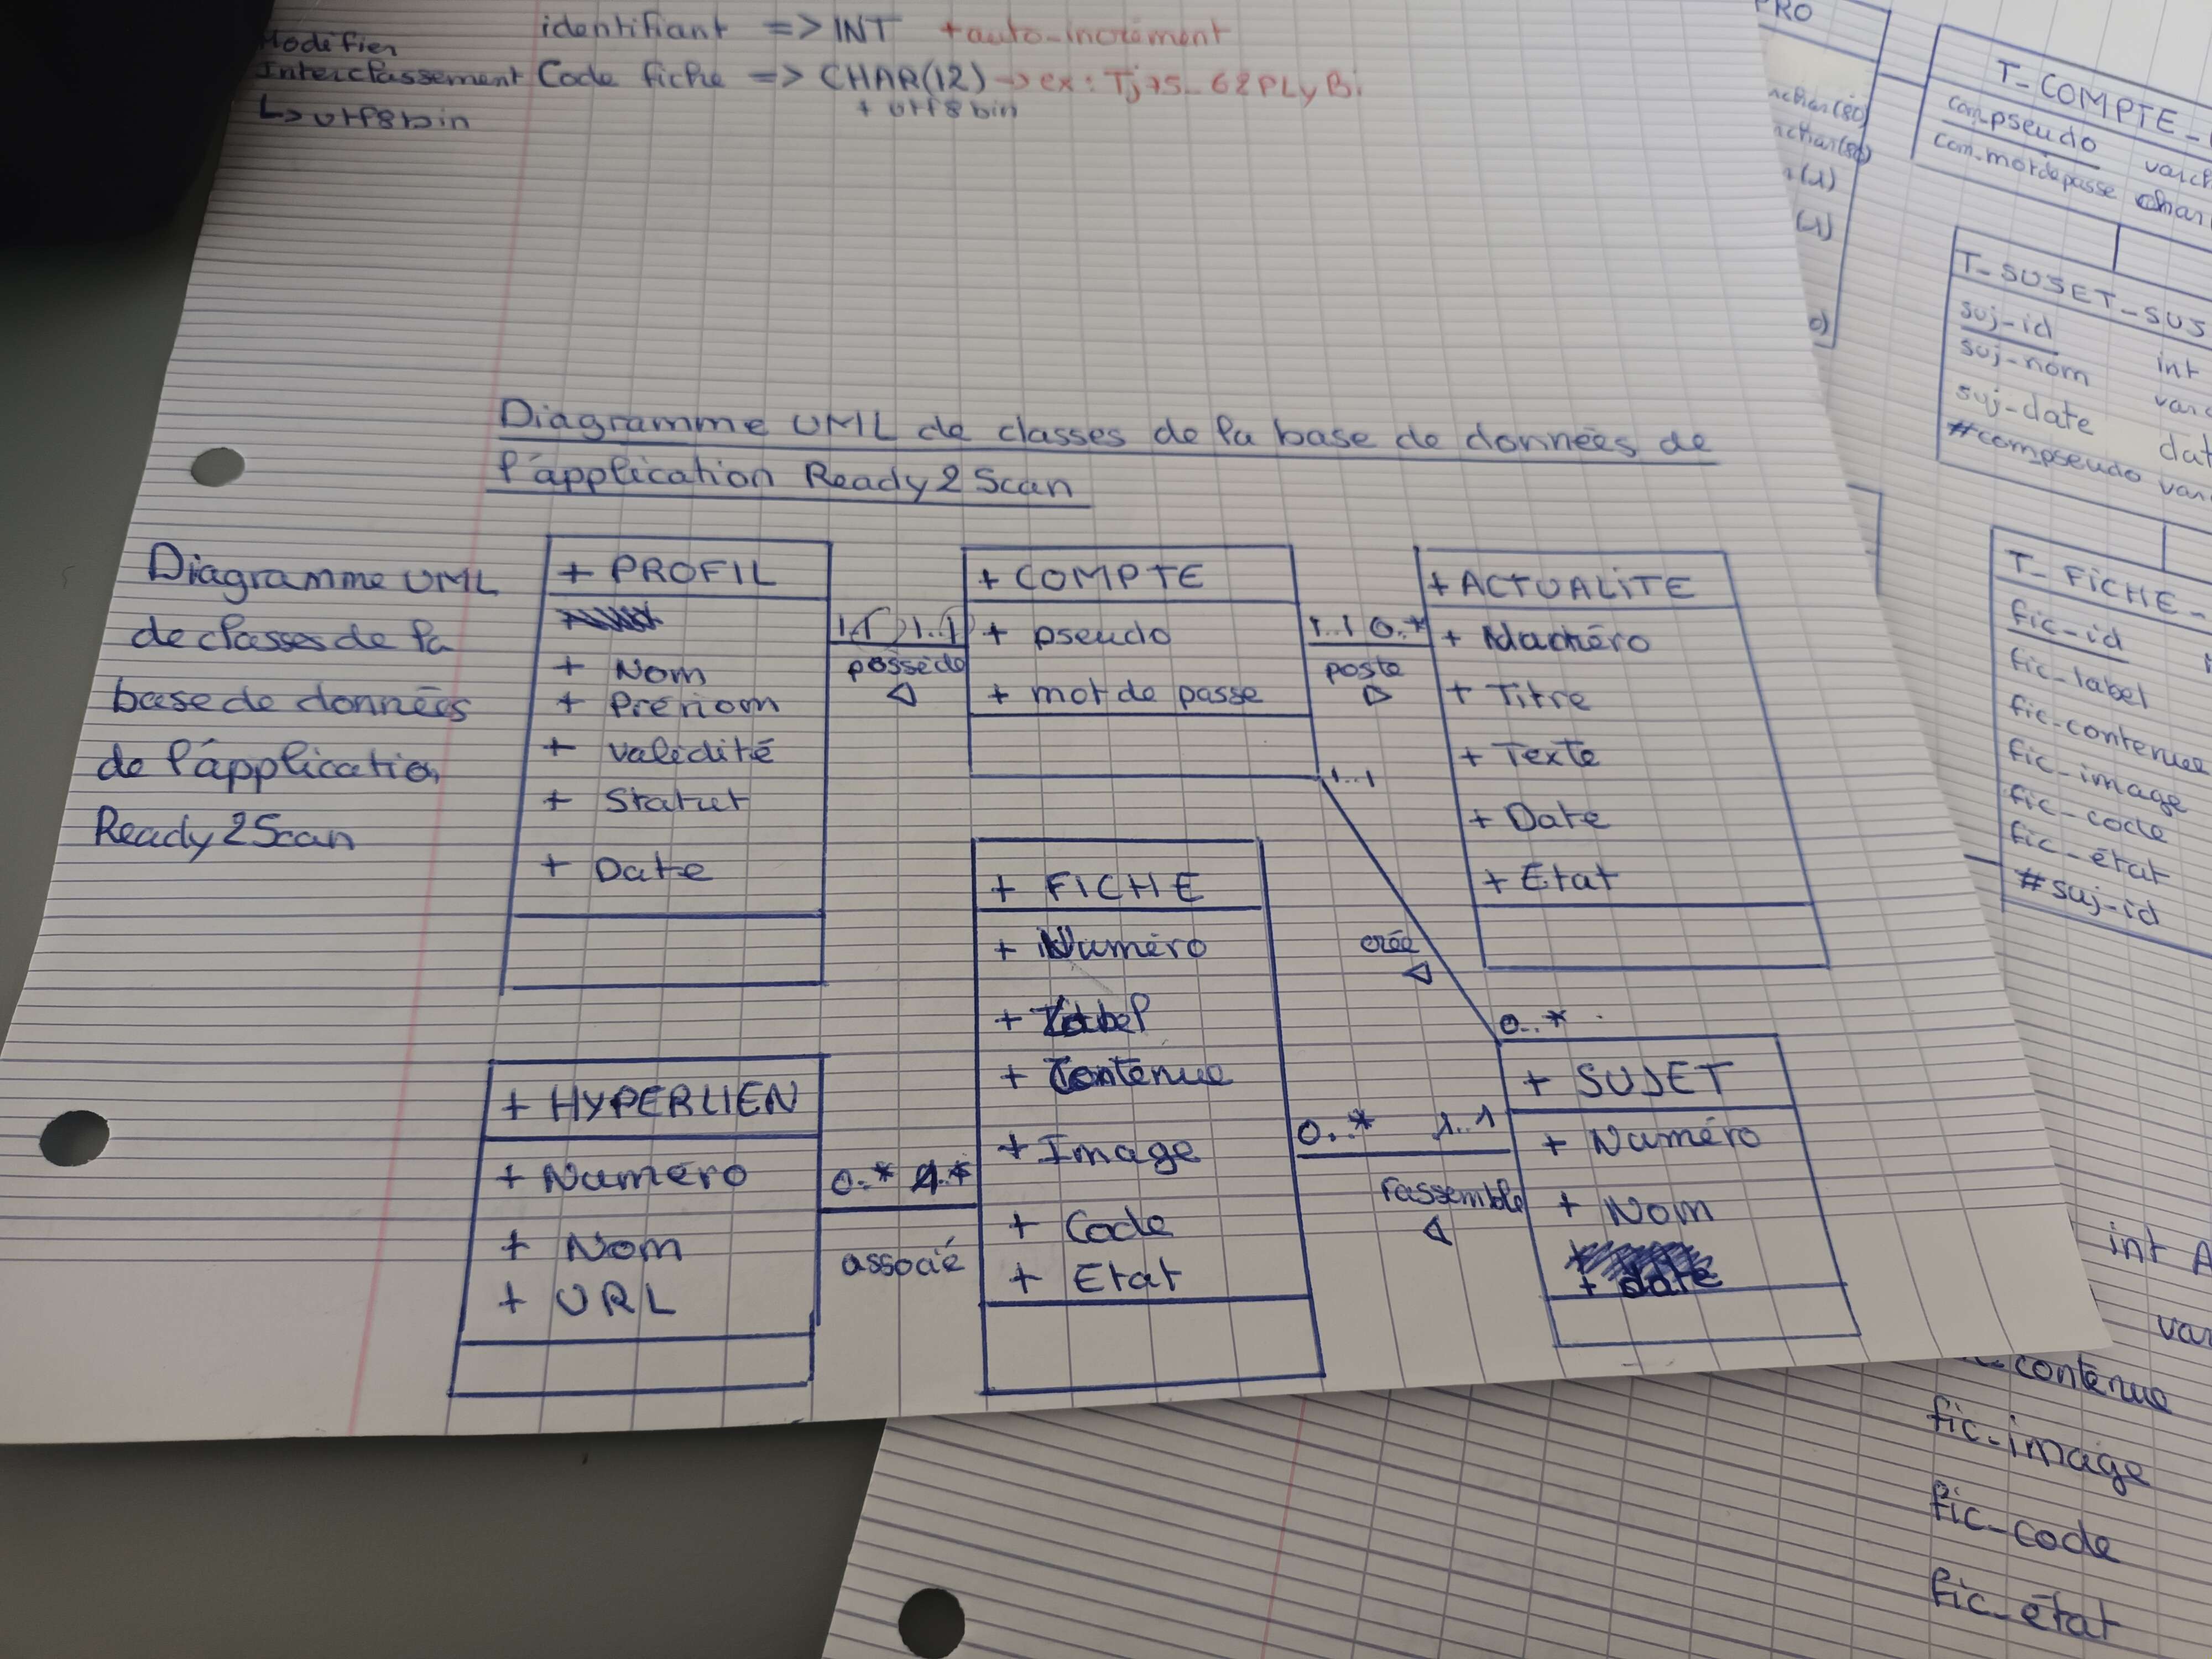 identifiant => INT + auto-increment
Modifier
Interclassement Code fiche => CHAR(12) -> ex : Tj75_62PLyBi
↳ utf8bin
+ utf8bin
Diagramme UML de classes de la base de données de
l'application Ready2Scan
Diagramme UML
de classes de la
base de données
de l'application
Ready2Scan
+ PROFIL
+ Nom
+ Prénom
+ validité
+ Statut
+ Date
1..1
possède
+ COMPTE
+ pseudo
+ mot de passe
1..1 0..*
poste
+ ACTUALITE
+ Numéro
+ Titre
+ Texte
+ Date
+ Etat
1..1
crée
0..*
+ FICHE
+ Numéro
+ Label
+ Contenue
+ Image
+ Code
+ Etat
+ HYPERLIEN
+ Numéro
+ Nom
+ URL
0..*
associé
0..* 1..1
rassemble
+ SUJET
+ Numéro
+ Nom
+ date
PRO
(1)
(1)
T_COMPTE_
com_pseudo
com_motdepasse char
T_SUJET_SUJ
suj-id int
suj-nom
suj-date
#com_pseudo
T_FICHE_
fic-id
fic-label
fic-contenue
fic-image
fic-code
fic-état
#suj-id
int A
contenue
fic-image
fic-code
fic-état